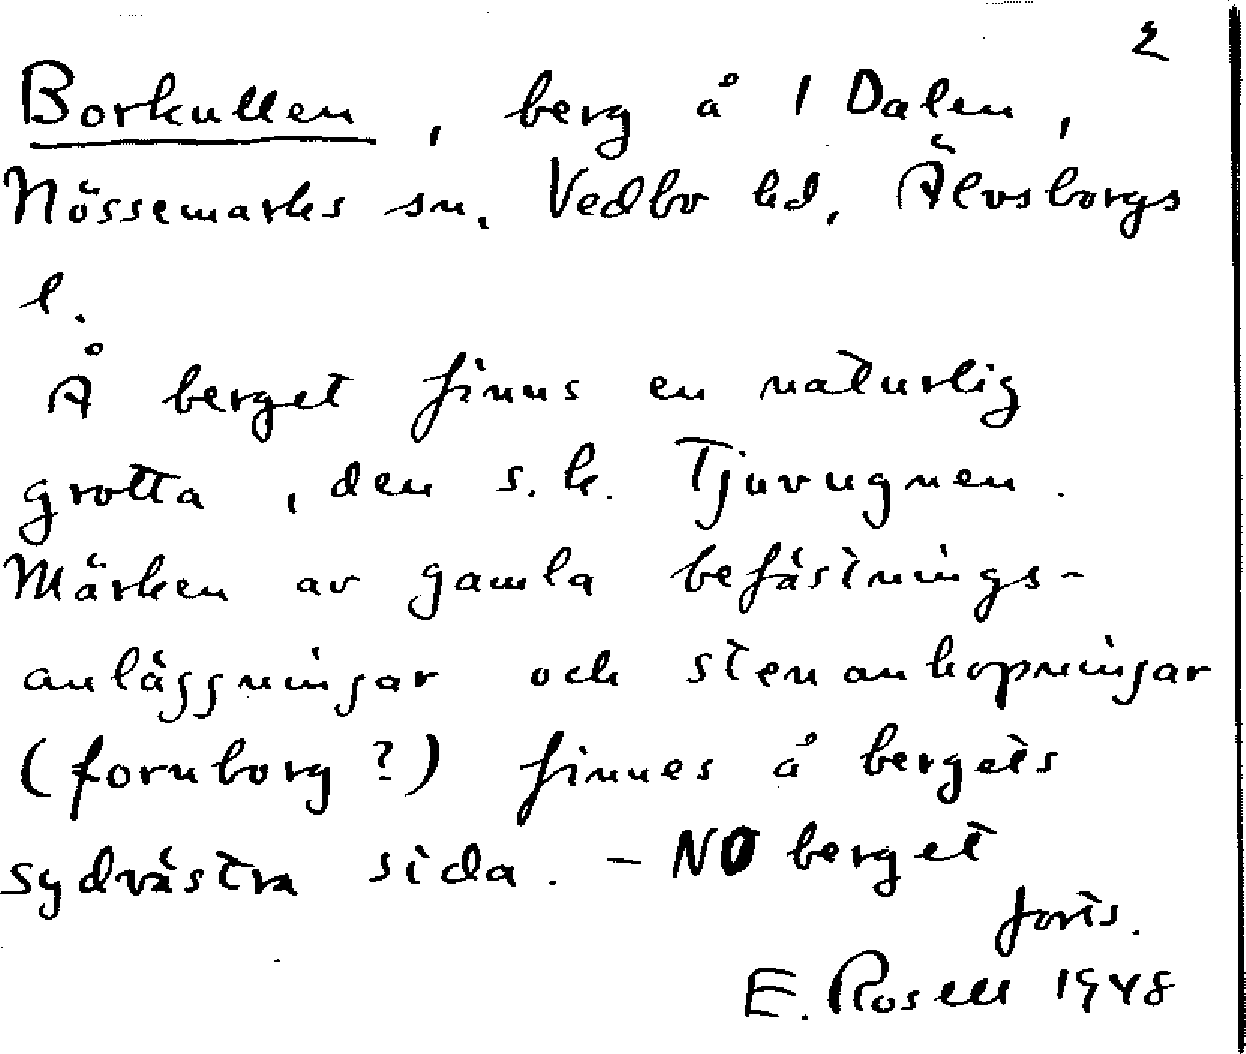 2
Borkullen, berg å 1 Dalen,
Nössemarks sn, Vedbo hd, Älvsborgs
l.
Å berget finns en naturlig
grotta, den s.k. Tjuvugnen.
Märken av gamla befästnings-
anläggningar och stenanhopningar
(fornborg?) finnes å bergets
sydvästra sida. - NO berget
forts.
E. Rosell 1948